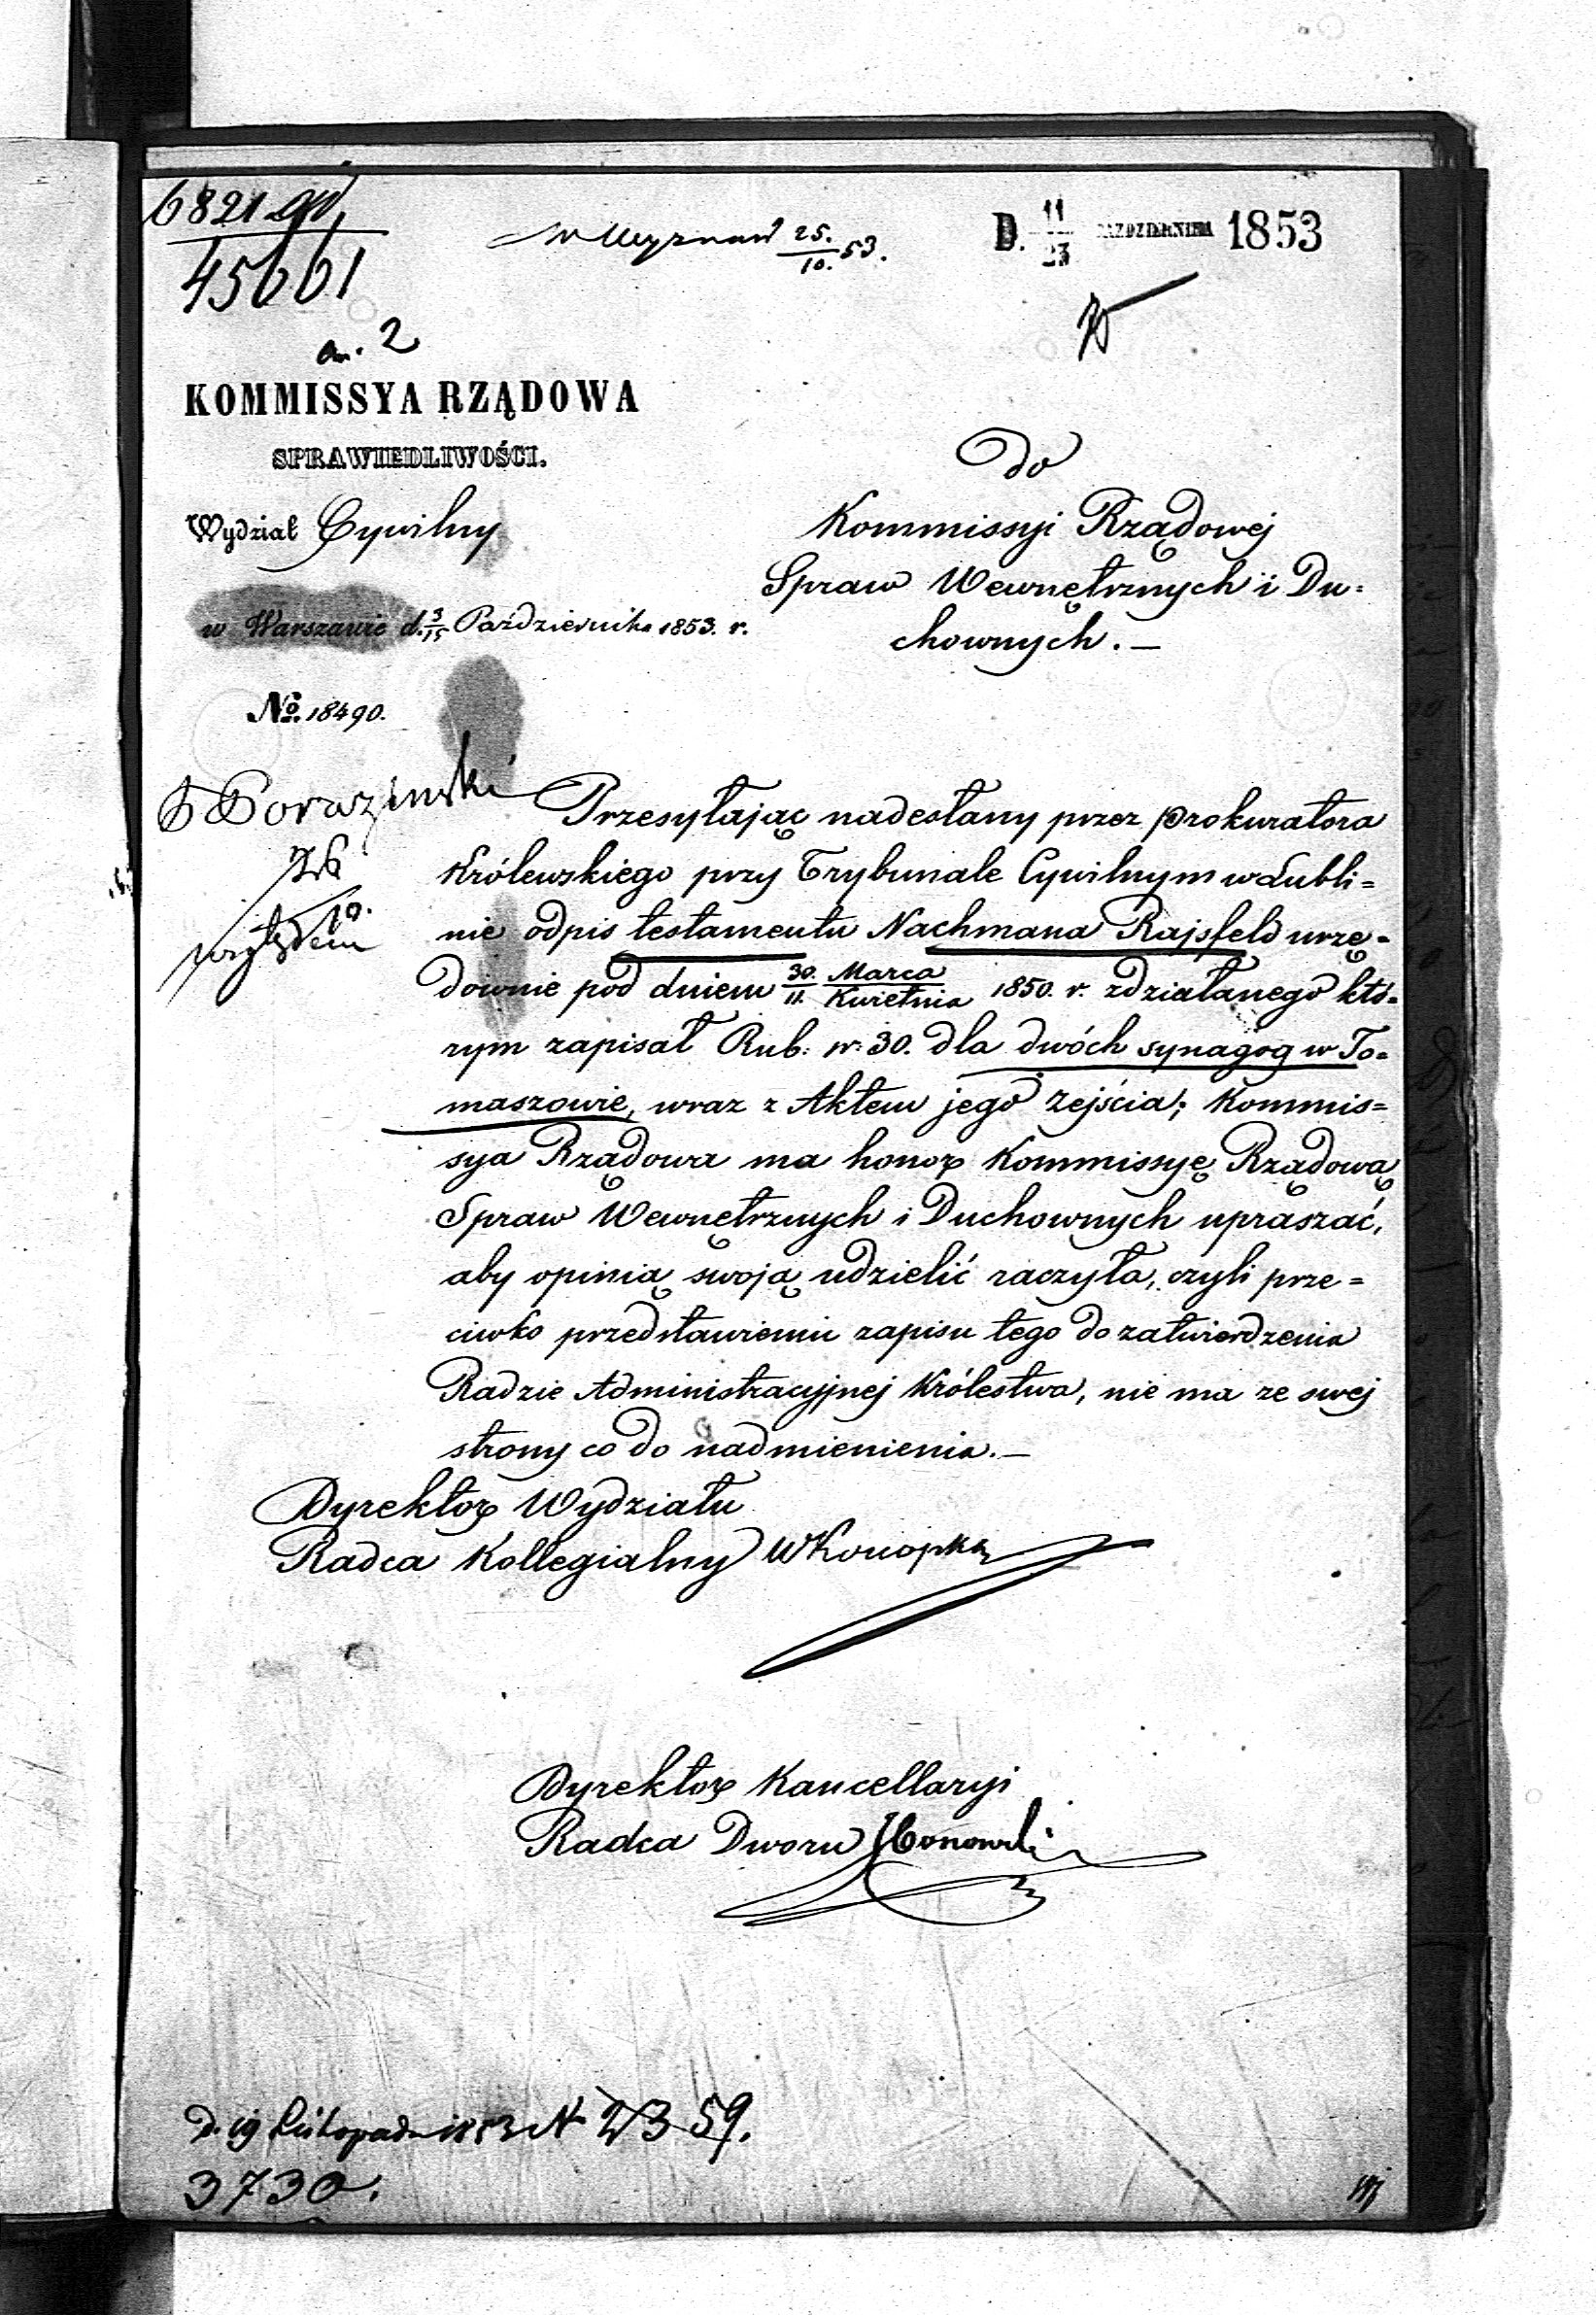 6821
45661
D. 11/23 PAŹDZIERNIKA 1853
25./10. 53.
an. 2
KOMMISSYA RZĄDOWA
SPRAWIEDLIWOŚCI.
Wydział Cywilny
w Warszawie d. 3/15 Października 1853. r.
No. 18490.
Do
Kommissyi Rządowej
Spraw Wewnętrznych i Du=
chownych. —
26/10.
Przesyłając nadesłany przez Prokuratora
Królewskiego przy Trybunale Cywilnym w Lubli=
nie odpis testamentu Nachmana Rajsfeld urzę=
downie pod dniem 30. Marca/11. Kwietnia 1850. r. zdziałanego któ=
rym zapisał Rub: sr: 30. dla dwóch synagog w To=
maszowie, wraz z Aktem jego zejścia; Kommis=
sya Rządowa ma honor Kommissyę Rządową
Spraw Wewnętrznych i Duchownych upraszać,
aby opinią swoją udzielić raczyła, czyli prze=
ciwko przedstawieniu zapisu tego do zatwierdzenia
Radzie Administracyjnej Królestwa, nie ma ze swej
strony co do nadmienienia. —
Dyrektor Wydziału
Radca Kollegialny WKonopka
Dyrektor Kancellaryi
Radca Dworu
d. 19 Listopada 1853 N 2359.
3730.